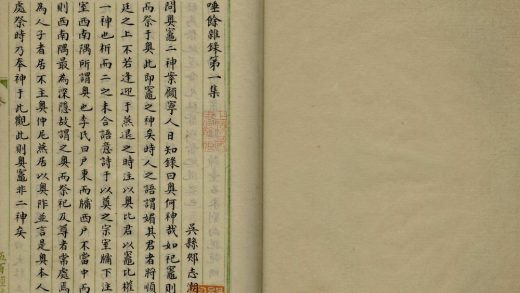 唾餘雜錄第一集
吳縣邱志潮
問奧竈二神案顧寧人日知錄曰奧何神哉如祀竈則
而祭于奧此即竈之神矣時人之語謂媚其君者將順
廷之上不若逢迎于燕退之時注以奧比君以竈比權
一神也析而二之未合語意詩于以奠之宗室牖下注
室西南隅所謂奧也李氏曰戶東而牖西戶不當中而
則西南隅最為深隱故謂之奧而祭祀及尊者常處焉
為人子者居不主奧仲尼燕居以奧阼並言是奧本人
處祭時乃奉神于此觀此則奧竈非二神矣